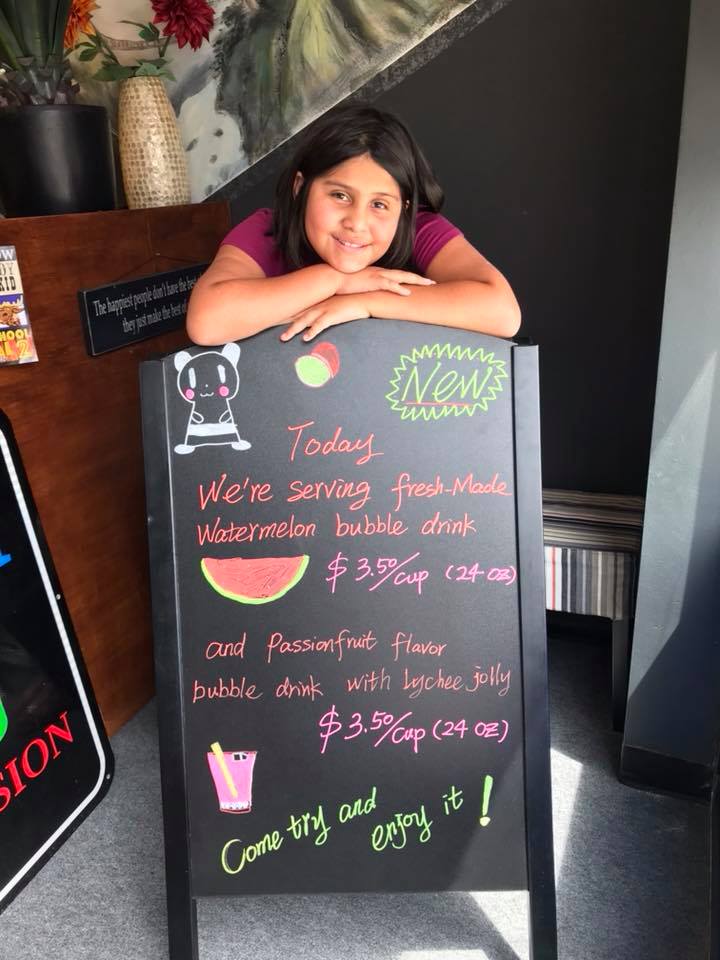 New
Today
We're serving fresh-Made
Watermelon bubble drink
$ 3.50/cup (24 oz)
and Passionfruit flavor
bubble drink with lychee jolly
$ 3.50/cup (24 oz)
Come try and
enjoy it !
The happiest people don't have the best
they just make the best of
SION